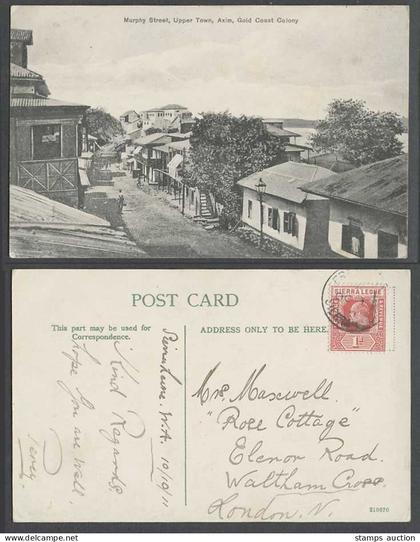 Murphy Street, Upper Town, Axim, Gold Coast Colony
POST CARD
This part may be used for
Correspondence.
ADDRESS ONLY TO BE HERE.
SIERRA LEONE
1d
Sierra Leone. W.A. 10/9/11
Kind Regards
hope you are well
Percy
Mrs. Maxwell
"Rose Cottage"
Elenor Road.
Waltham Cross
London. N.
stamps auction